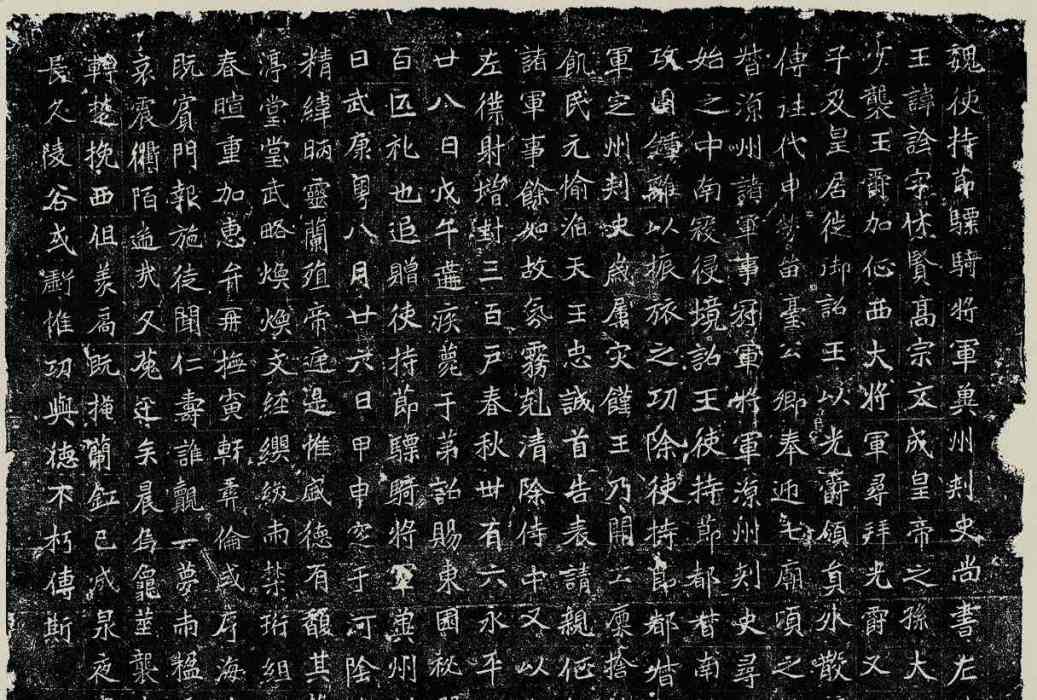 魏使持節驃騎將軍冀州刾史尚書左
王諱詮字休賢高宗文成皇帝之孫大
少襲王爵加征西大將軍尋拜光爵又
子及皇居徙御詔王以光爵領員外散
代申勞留臺公卿奉迎七廟頃之
督涼州諸軍事冠軍將軍涼州刾史尋
始之中南寇侵境詔王使持節都督南
攻圍鍾離以振旅之功除使持節都督
軍定州刾史歲屬灾饉王乃開二廩捨
飢民元愉滔天王忠誠首告表請親征
諸軍事餘如故氛霧剋清除侍中又以
左僕射增封三百戶春秋卅有六永平
廿八日戊午遘疾薨于第詔賜東園秘
百匹礼也追贈使持節驃騎將軍冀州
日武康粵八月廿六日甲申窆于河陰
精緯昞靈蘭殖帝庭湜惟盛德有馥其
渟堂堂武略煥煥文經纓紱兩禁珩組
春暄重加惠弁再撫寅軒彝倫或序海
既賓門報施徒聞仁壽誰覿一夢兩楹
哀震衢陌逝我夕菟逕矣晨烏龜莁襲
轉楚挽西徂羨扃既掩蘭釭已滅泉夜
長久陵谷或虧惟功與德不朽傳斯